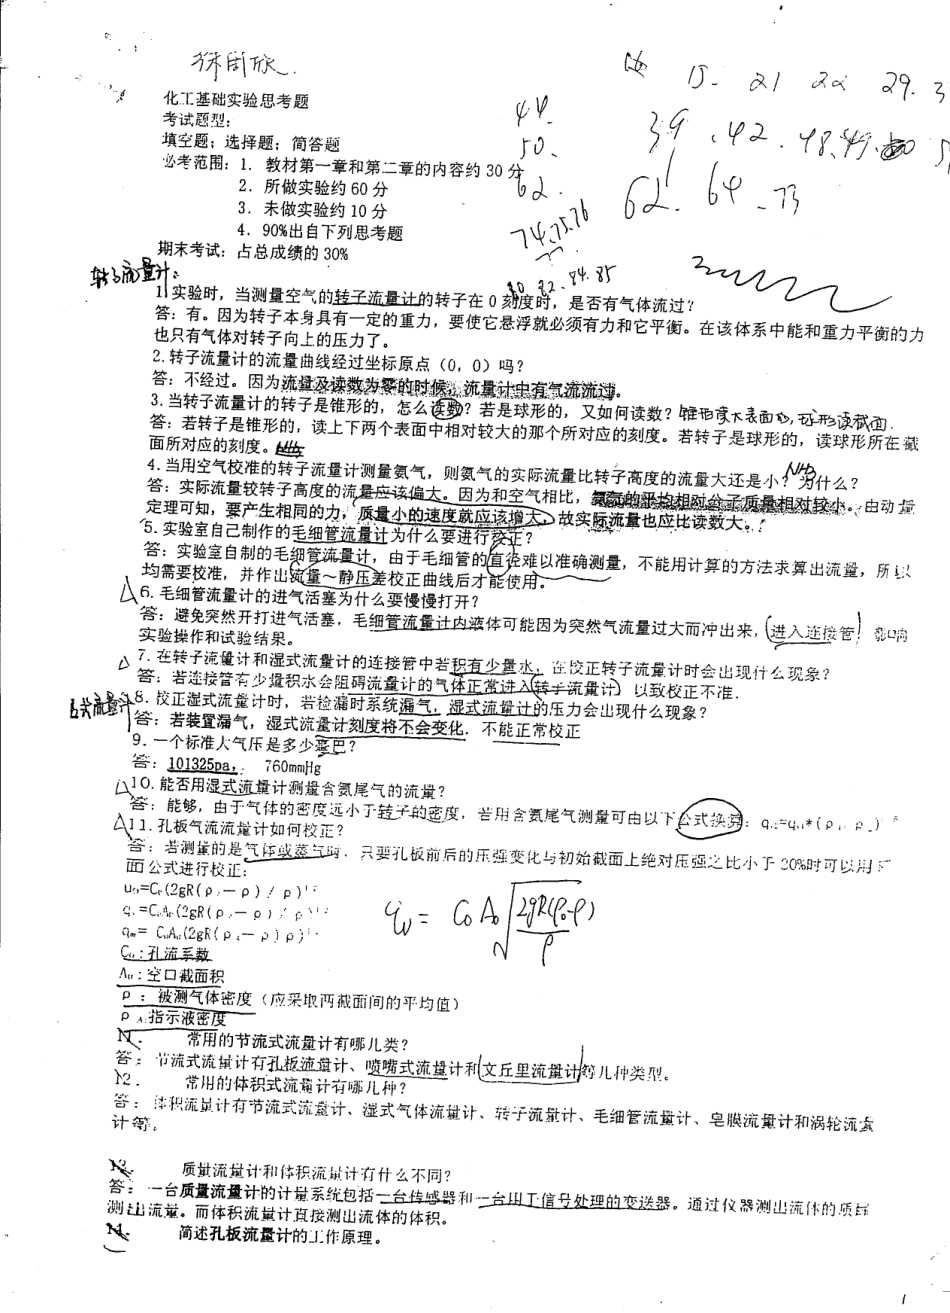 15. 21 22 29. 3
44. 39 、42 . 48、49、50
50、
62. 62. 64 、73
74、75、76
80、82、84、85
化工基础实验思考题
考试题型：
填空题；选择题；简答题
必考范围：1. 教材第一章和第二章的内容约 30 分
2. 所做实验约 60 分
3. 未做实验约 10 分
4. 90%出自下列思考题
期末考试：占总成绩的 30%
转子流量计：
1 实验时，当测量空气的转子流量计的转子在 0 刻度时，是否有气体流过？
答：有。因为转子本身具有一定的重力，要使它悬浮就必须有力和它平衡。在该体系中能和重力平衡的力
也只有气体对转子向上的压力了。
2. 转子流量计的流量曲线经过坐标原点（0，0）吗？
答：不经过。因为流量及读数为零的时候，流量计中有气流流过。
3. 当转子流量计的转子是锥形的，怎么读数？若是球形的，又如何读数？
答：若转子是锥形的，读上下两个表面中相对较大的那个所对应的刻度。若转子是球形的，读球形所在截
面所对应的刻度。
NH₃
4. 当用空气校准的转子流量计测量氨气，则氨气的实际流量比转子高度的流量大还是小？为什么？
答：实际流量较转子高度的流量应该偏大。因为和空气相比，氨气的平均相对分子质量相对较小。由动量
定理可知，要产生相同的力，质量小的速度就应该增大，故实际流量也应比读数大。
5. 实验室自己制作的毛细管流量计为什么要进行校正？
答：实验室自制的毛细管流量计，由于毛细管的直径难以准确测量，不能用计算的方法求算出流量，所以
均需要校准，并作出流量～静压差校正曲线后才能使用。
6. 毛细管流量计的进气活塞为什么要慢慢打开？
答：避免突然开打进气活塞，毛细管流量计内液体可能因为突然气流量过大而冲出来，进入连接管！影响
实验操作和试验结果。
7. 在转子流量计和湿式流量计的连接管中若积有少量水，在校正转子流量计时会出现什么现象？
答：若连接管有少量积水会阻碍流量计的气体正常进入(转子流量计) 以致校正不准.
8. 校正湿式流量计时，若检漏时系统漏气，湿式流量计的压力会出现什么现象？
答：若装置漏气，湿式流量计刻度将不会变化. 不能正常校正
9. 一个标准大气压是多少毫巴？
答：101325pa， 760mmHg
10. 能否用湿式流量计测量含氨尾气的流量？
答：能够，由于气体的密度远小于转子的密度，若用含氨尾气测量可由以下公式换算：
11. 孔板气流流量计如何校正？
答：若测量的是气体或蒸气时，只要孔板前后的压强变化与初始截面上绝对压强之比小于 20%时可以用下
面公式进行校正：
qv = C₀A₀√(2gR(ρ₀-ρ)/ρ)
C₀：孔流系数
A₀：空口截面积
ρ ： 被测气体密度（应采取两截面间的平均值）
ρ A：指示液密度
11. 常用的节流式流量计有哪几类？
答：节流式流量计有孔板流量计、喷嘴式流量计和文丘里流量计等几种类型。
12. 常用的体积式流量计有哪几种？
答：体积流量计有节流式流量计、湿式气体流量计、转子流量计、毛细管流量计、皂膜流量计和涡轮流量
计等。
13. 质量流量计和体积流量计有什么不同？
答：一台质量流量计的计量系统包括一台传感器和一台用于信号处理的变送器。通过仪器测出流体的质量
测出流量。而体积流量计直接测出流体的体积。
14. 简述孔板流量计的工作原理。
1